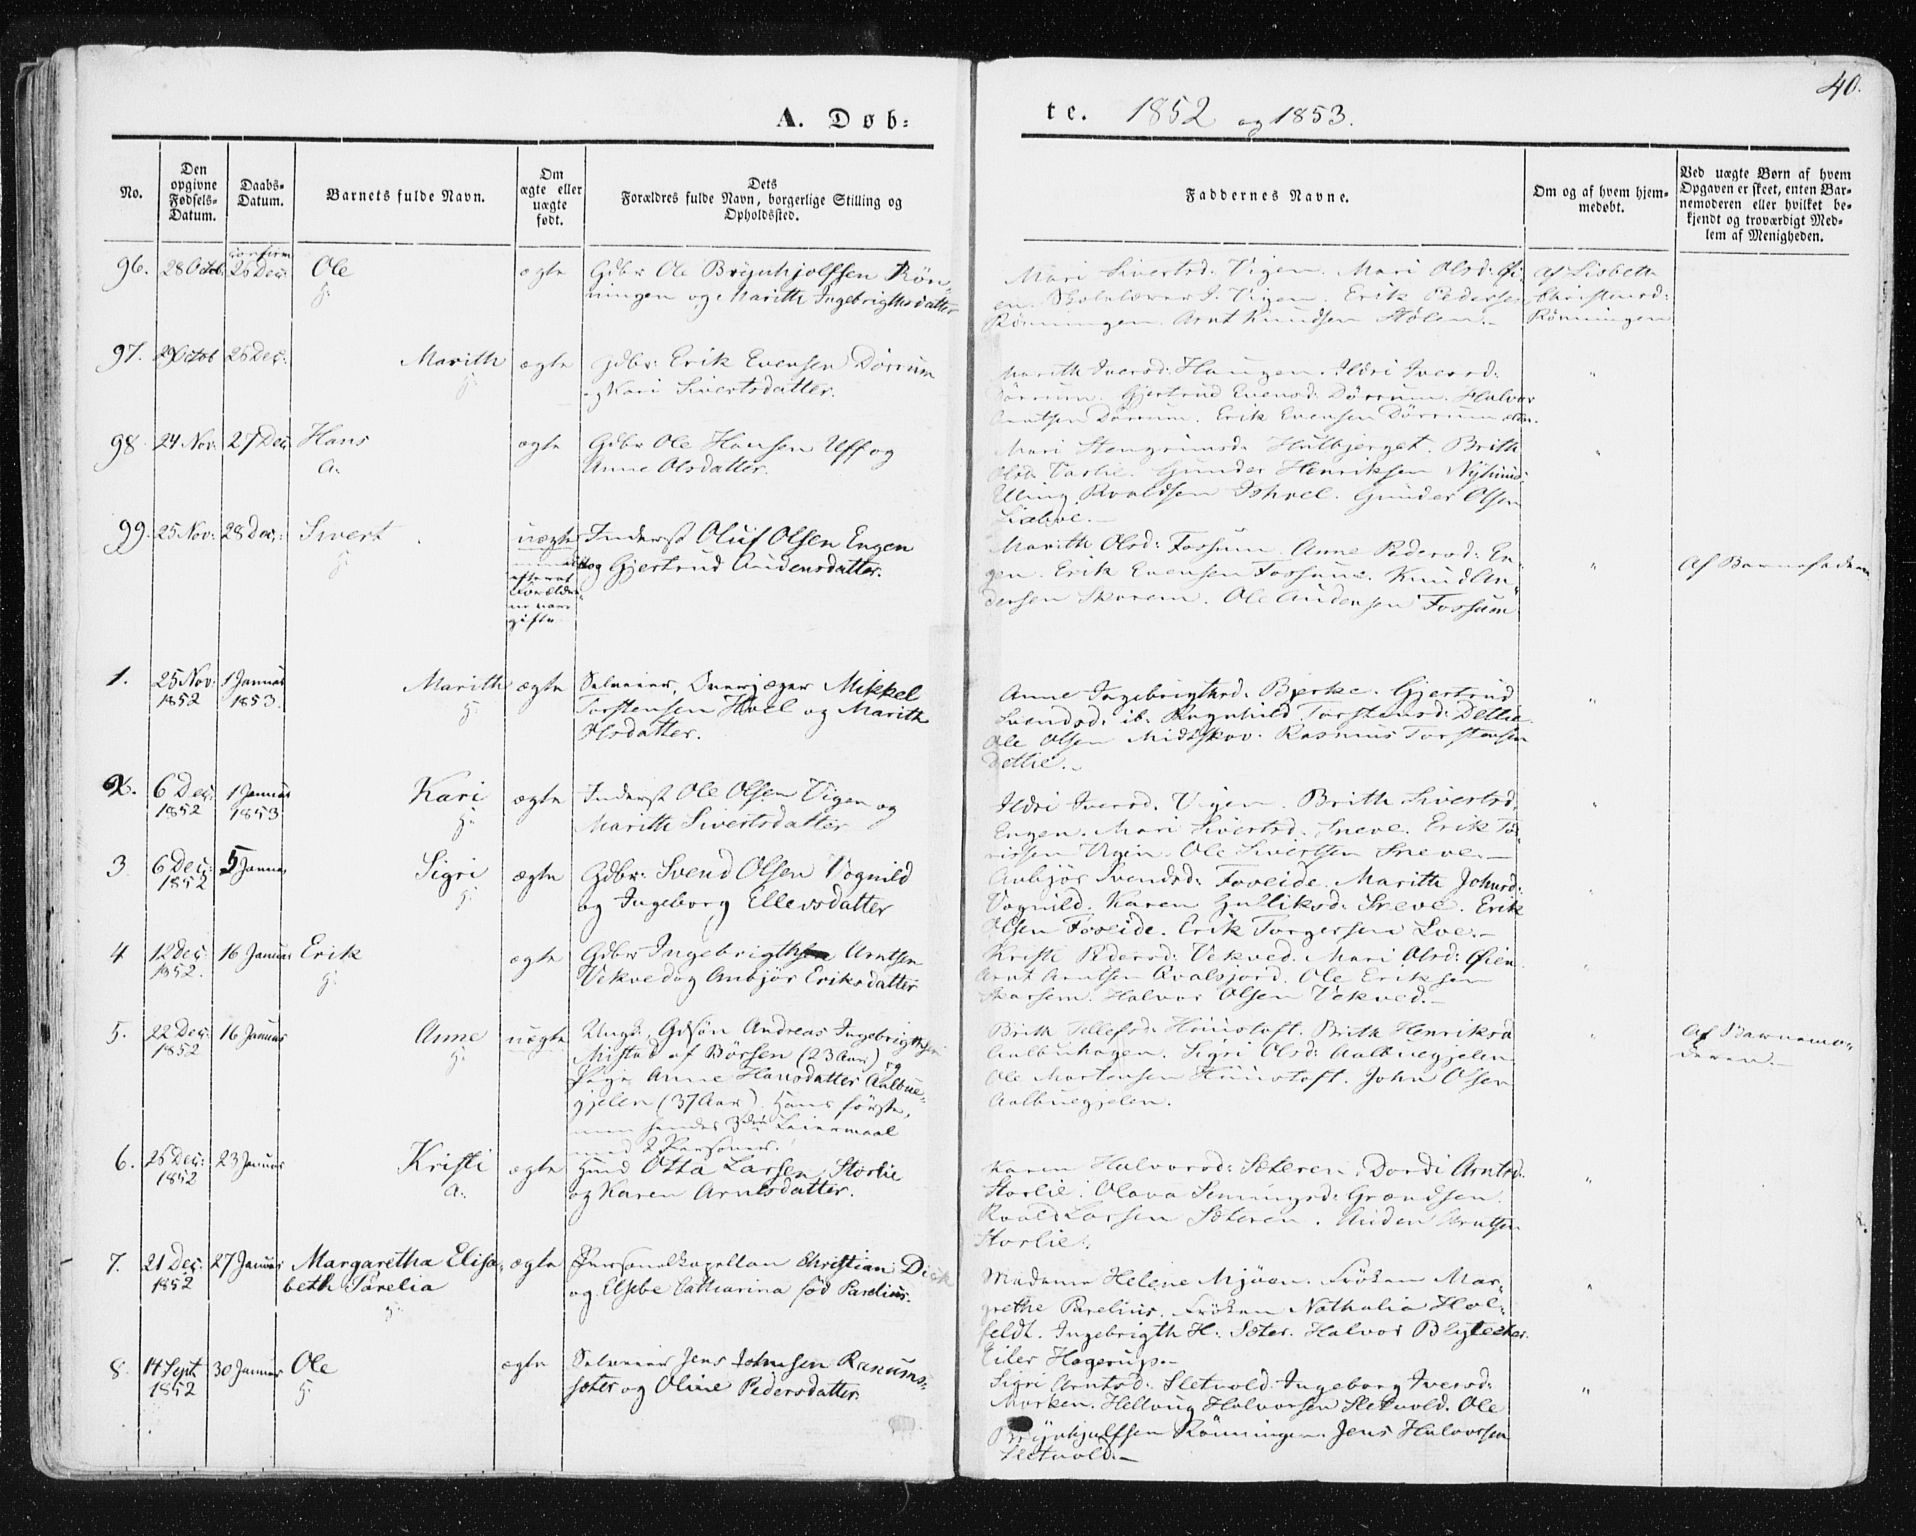 40.
A. Døb-
te. 1852 og 1853.
No.
Den opgivne Fødsels-Datum.
Daabs-Datum.
Barnets fulde Navn.
Om ægte eller uægte født.
Dets Forældres fulde Navn, borgerlige Stilling og Opholdssted.
Faddernes Navne.
Om og af hvem hjem-
medøbt.
Ved uægte Børn af hvem
Opgaven er skeet, enten Bar-
nemoderen eller hvilket be-
kjendt og troværdigt Med-
lem af Menigheden.
96. 28 Octob. 26 Dec: Ole ægte Gdbr Ole Brynhjolfsen Rön-
ningen og Marith Ingebrigthsdatter
Mari Sivertsd. Vigen. Mari Olsd: Øi-
en. Skolelærer J. Vigen. Erik Pedersen
Rönningen. Arnt Knudsen Stölen.
Af Lisbeth
Christensd:
Rönningen
97. 26 Dec: Marith ægte Gdbr: Erik Evensen Dörrum
og Kari Sivertsdatter.
Marith Iversd: Haugen. Ildri Iversd:
Dörrum. Gjertrud Evensd: Dörrum. Halvor
Arntsen Dörrum. Erik Evensen Dörrum
98 24 Nov: 27 Dec: Hans ægte Gdbr Ole Hansen Uff og
A: Anne Olsdatter.
Mari Stengrimsd: Hulbjerget. Brith
Gunder Henriksen
Roaldsen Ishoel. Gunder Olsen
99. 25 Nov: 28 Dec: Sivert uægte Inderst Oluf Olsen Engen
og Gjertrud Audensdatter.
efterat
Forældre-
ne vare
gifte
Marith Olsd: Fossum. Anne Pedersd: En-
gen. Erik Evensen Fossum. Knud An-
dersen Skorem. Ole Audensen Fossum
Af Barnefaderen
1. 25 Nov: 1 Januar Marith ægte Selveier, Overjæger Mikkel
1852 1853. Torstensen Hoel og Marith
Olsdatter.
Anne Ingebrigthsd: Bjerke. Gjertrud
Svendsd: ib: Ragnhild Torstensd: Detlie
Ole Olsen Midtskov. Rasmus Torstensen
Detlie.
2. 6 Dec: 1 Januar Kari ægte Inderst Ole Olsen Vigen og
1852 1853 Marith Sivertsdatter
Ildri Iversd. Vigen. Brith Sivertsd.
Engen. Mari Sivertsd. Sneve. Erik To-
rissen Vigen. Ole Sivertsen Sneve.
3. 6 Dec: 5 Januar Sigri ægte Gdbr: Svend Olsen Vognild
1852 og Ingeborg Ellevsdatter
Anbjör Svendsd: Foseide. Marith Johnsd:
Vognild. Karen Gulliksd: Sneve. Erik
Olsen Foseide. Erik Torgersen Loe.
4 12 Dec: 16 Januar Erik ægte Gdbr Ingebrigth Arntsen
1852. Vekved og Anbjör Eriksdatter
Kristi Pedersd: Vekved. Mari Olsd: Øien
Arnt Arntsen Qvalsjord. Ole Eriksen
Skarsem. Halvor Olsen Vekved.
5. 22 Dec: 16 Januar Anne uægte Ungk: Gdsön Andreas Ingebrigthsen
1852 Mistad af Börsen (23 Aar) og
Pige Anne Hansdatter Aalbue-
gjelen (37 Aar). Hans förste,
men hendes 3die Leiermaal
med 2 Personer.
Brith Ellefsd: Hiinstoft. Brith Henriksd
Aalbuhagen. Sigri Olsd: Aalbuegjelen
Ole Mortensen Hiinstoft. John Olsen
Aalbuegjelen.
Af Barnemo-
deren.
6. 26 Dec: 23 Januar Kristi ægte Huusmd Otta Larsen Storlie
1852 A: og Karen Arntsdatter.
Karen Halvorsd: Sæteren. Dordi Arntsd:
Storlie. Olava Semmingsd: Grændsen
Roald Larsen Sæteren. Auden Arntsen
Storlie.
7. 21 Dec: 27 Januar Margaretha Elisa- ægte Personelkapellan Christian Dick
1852 beth Sørelia og Elsebe Catharina föd Parelius.
Madame Helene Mjöen. Fröken Mar-
grethe Parelius. Fröken Nathalia Hol-
feldt. Ingebrigth H. Sæter. Halvor Blytecher.
Eiler Hagerup.
8. 14 Sept 30 Januar Ole ægte Selveier Jens Johnsen Ranums-
1852 sæter og Oline Pedersdatter.
Sigri Arntsd: Sletvold. Ingeborg Iversd:
Morken. Hellvig Halvorsen Sletvold. Ole
Brynhjulfsen Rönningen. Jens Halvorsen
Sletvold.